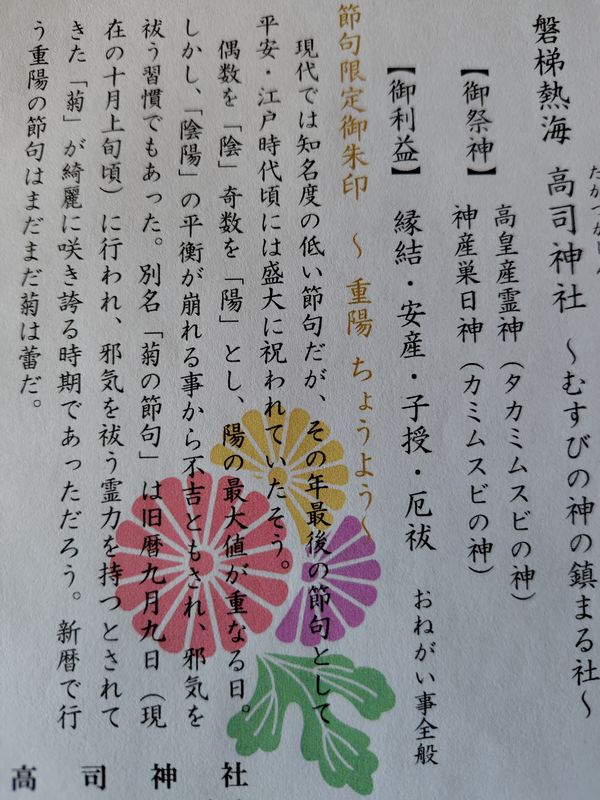 たかつかじん
磐梯熱海　高司神社　～むすびの神の鎮まる社～
【御祭神】　高皇産霊神（タカミムスビの神）
神産巣日神（カミムスビの神）
【御利益】　縁結・安産・子授・厄祓　おねがい事全般
節句限定御朱印　～　重陽　ちょうよう～
現代では知名度の低い節句だが、その年最後の節句として
平安・江戸時代頃には盛大に祝われていたそう。
偶数を「陰」奇数を「陽」とし、陽の最大値が重なる日。
しかし、「陰陽」の平衡が崩れる事から不吉ともされ、邪気を
祓う習慣でもあった。別名「菊の節句」は旧暦九月九日（現
在の十月上旬頃）に行われ、邪気を祓う霊力を持つとされて
きた「菊」が綺麗に咲き誇る時期であっただろう。新暦で行
う重陽の節句はまだまだ菊は蕾だ。
高司神社